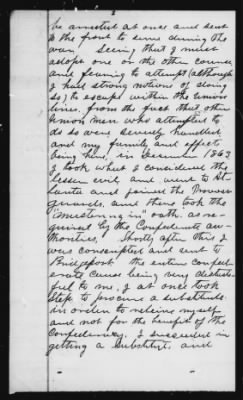 2
be arrested at once and sent
to the front to serve during the
war. Seeing that I must
adopt one or the other course
and fearing to attempt (although
I had strong notions of doing
so), to escape within the union
lines, from the fact that other
Union men who attempted to
do so were severely handled
and my family and effects
being here, in December 1863
I took what I considered the
lesser evil and went to At-
lanta and joined the
guards, and there took the
"mustering in" oath as re-
quired by the Confederate au-
thorities, Shortly after this I
was conscripted and sent to
Bridgeport the entire confed-
erate cause being very distaste-
ful to me, I at once took
step to procure a substitute
in order to relieve myself
and not for the benefit of the
Confederacy. I succeeded in
getting a substitute, and